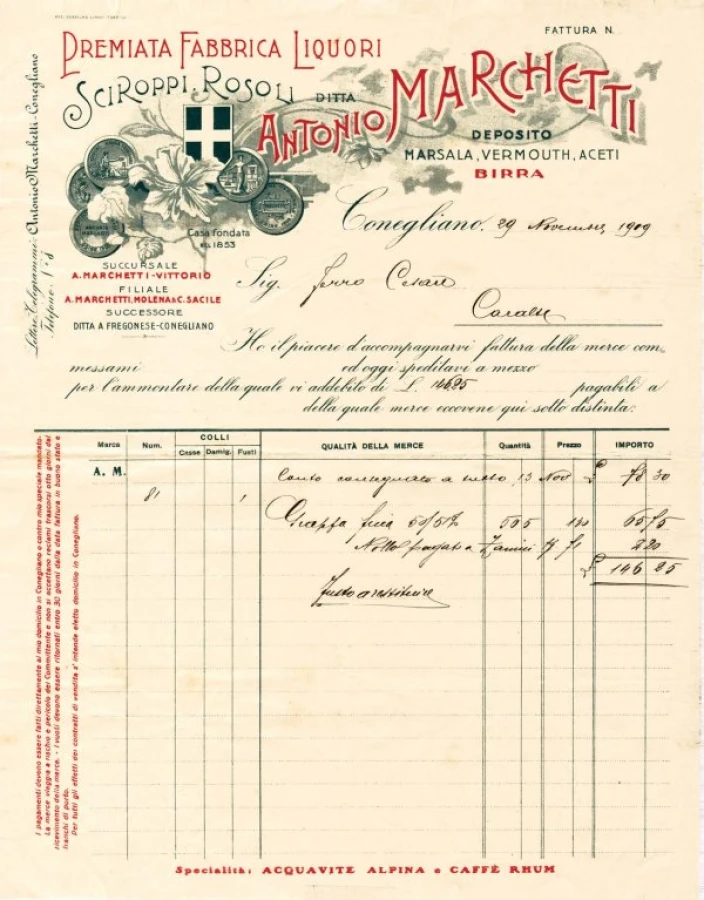 FATTURA N.
PREMIATA FABBRICA LIQUORI
SCIROPPI, ROSOLI
DITTA
ANTONIO MARCHETTI
DEPOSITO
MARSALA, VERMOUTH, ACETI
BIRRA
Casa fondata
nel 1853
Conegliano, 29 Novembre 1909
SUCCURSALE
A. MARCHETTI-VITTORIO
FILIALE
A. MARCHETTI, MOLENA & C. SACILE
SUCCESSORE
DITTA A FREGONESE-CONEGLIANO
Lettere, Telegrammi: Antonio Marchetti-Conegliano
Telefono: 1-8
Sig. Ferro Cesare
Ho il piacere d'accompagnarvi fattura della merce com-
messami ed oggi speditavi a mezzo
per l'ammontare della quale vi addebito di L. 146.25 pagabili a
della quale merce eccovene qui sotto distinta:
Marca Num. COLLI QUALITÀ DELLA MERCE Quantità Prezzo IMPORTO
Casse Damig. Fusti
A. M. Conto consegnato a tutto 13 Nov £ 78 30
81 1
Grappa fina 50/51% 505 130 65 75
Nolo pagato a 2 20
£ 146 25
Fusto a restituire
I pagamenti devono essere fatti direttamente al mio domicilio in Conegliano o contro mio speciale mandato.
La merce viaggia a rischio e pericolo del Committente e non si accettano reclami trascorsi otto giorni dal
ricevimento della merce. - I vuoti devono essere ritornati entro 30 giorni dalla data fattura in buono stato e
franchi di porto.
Per tutti gli effetti dei contratti di vendita s'intende eletto domicilio in Conegliano.
Specialità: ACQUAVITE ALPINA e CAFFÈ RHUM